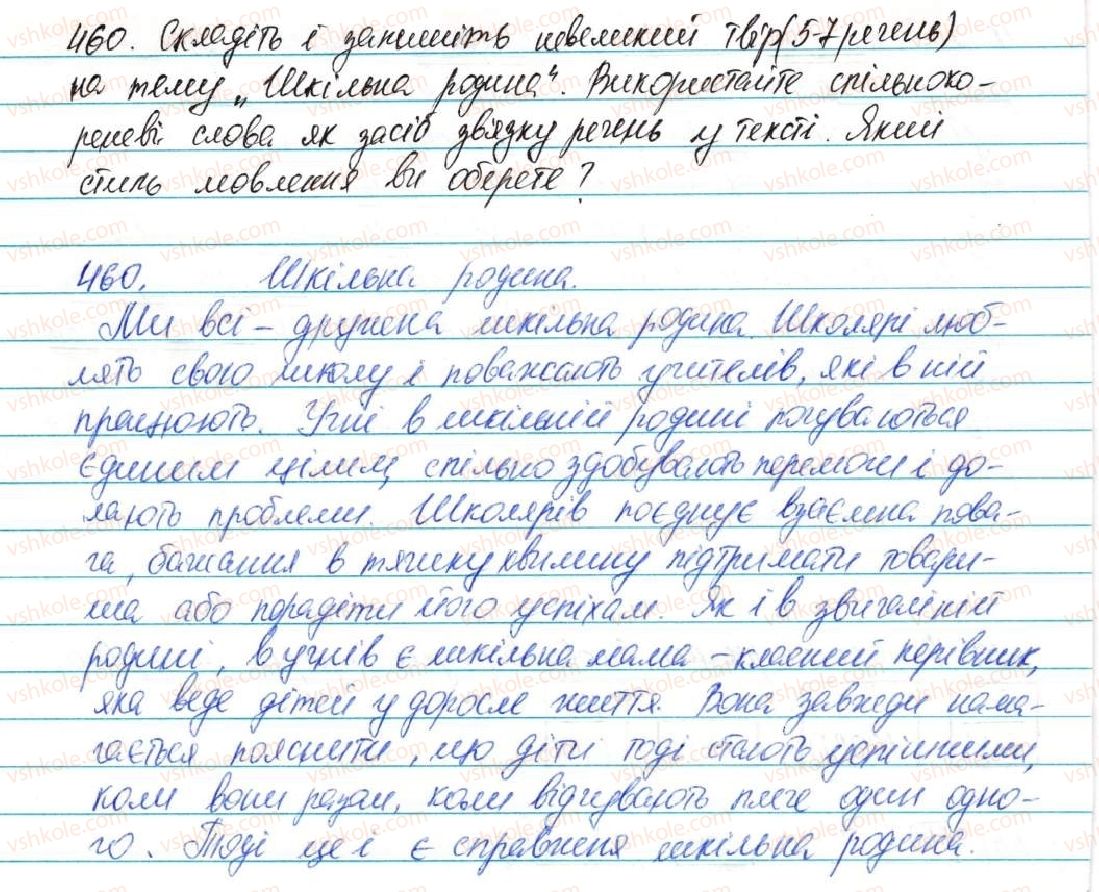 460. Складіть і запишіть невеликий твір (5-7 речень)
на тему „Шкільна родина". Використайте спільноко-
реневі слова як засіб зв'язку речень у тексті. Який
стиль мовлення ви оберете?
460. Шкільна родина.
Ми всі – дружена шкільна родина. Школярі люб-
лять свою школу і поважають учителів, які в ній
працюють. Учні в шкільній родині почуваються
єдиним цілим, спільно здобувають перемоги і до-
лають проблеми. Школярів поєднує взаємна пова-
га, бажання в тяжку хвилину підтримати товари-
ша або порадіти його успіхам. Як і в звичайній
родині, в учнів є шкільна мама – класний керівник,
яка веде дітей у доросле життя. Вона завжди нама-
гається пояснити, що діти тоді стають успішними,
коли вони разом, коли відчувають плече один одно-
го. Тоді це і є справжня шкільна родина.